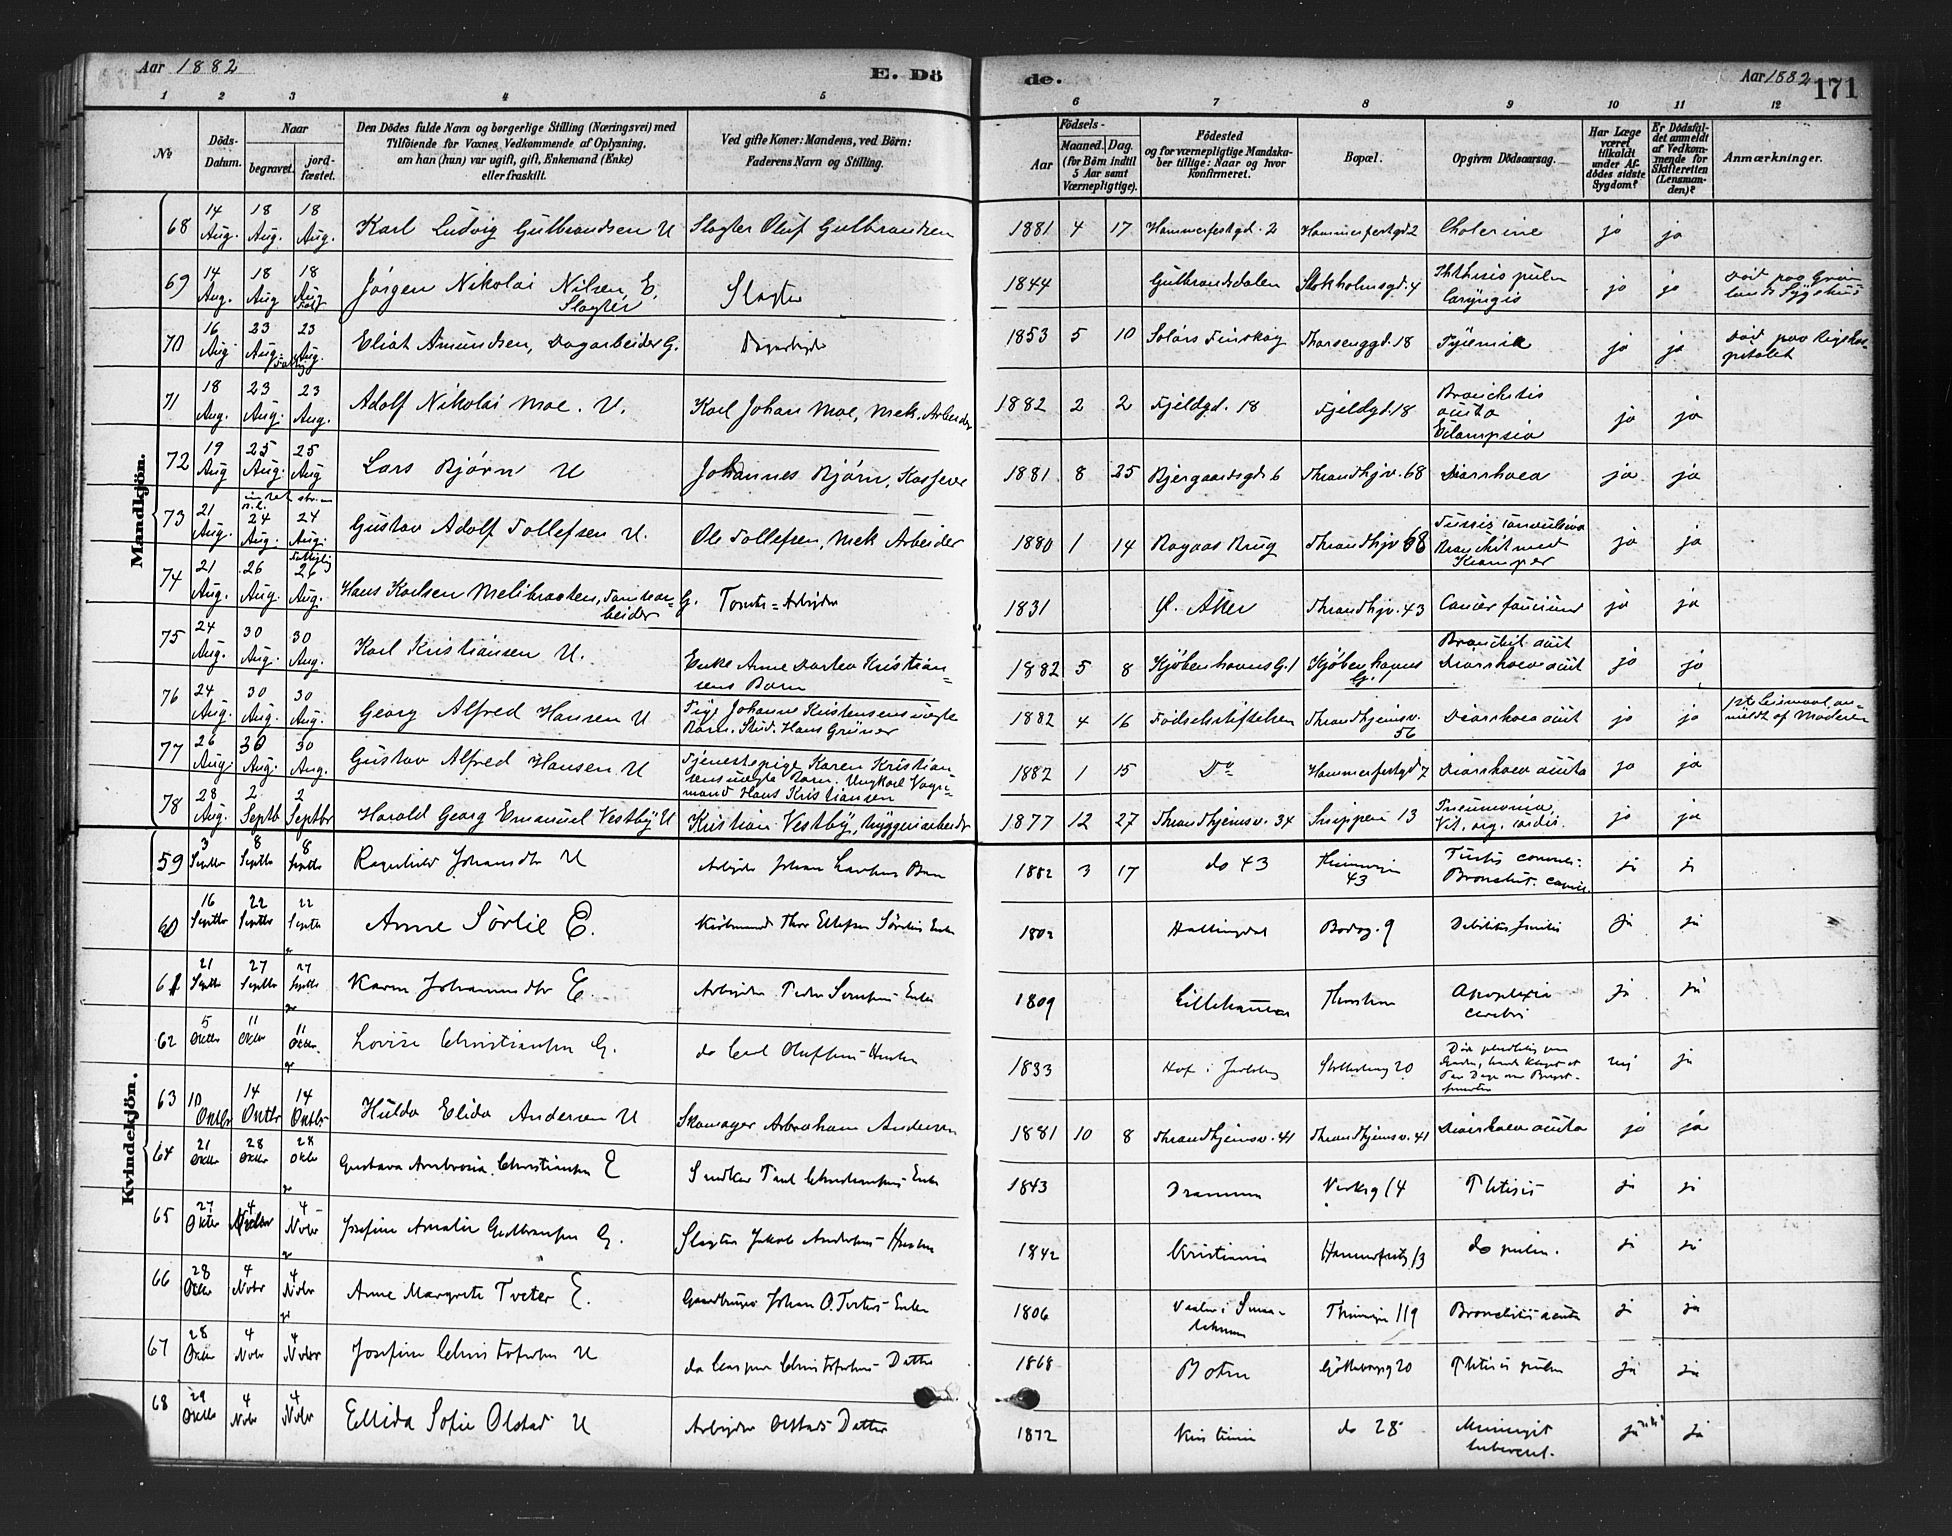 Aar 1882
E. Dö
de.
Aar 1882 171
1 2 3 4 5 6 7 8 9 10 11 12
No
Döds-Datum.
Naar
begravet.
jord-fæstet.
Den Dödes fulde Navn og borgerlige Stilling (Næringsvei) med
Tilföiende for Voxnes Vedkommende af Oplysning,
om han (hun) var ugift, gift, Enkemand (Enke)
eller fraskilt.
Ved gifte Koner: Mandens, ved Börn:
Faderens Navn og Stilling.
Födsels-
Aar
Maaned. Dag.
(for Börn indtil
5 Aar samt
Værnepligtige).
Födested
og for værnepligtige Mandska-
ber tillige: Naar og hvor
konfirmeret.
Bopæl.
Opgiven Dödsaarsag.
Har Læge
været
tilkaldt
under Af-
dödes sidste
Sygdom?
Er Dödsfal-
det anmeldt
af Vedkom-
mende for
Skifteretten
(Lensman-
den)?
Anmærkninger.
Mandkjön.
68 14 Aug. 18 Aug. 18 Aug. Karl Ludvig Gulbrandsen U Slagter Oluf Gulbrandsen 1881 4 17 Hammerfestgd. 2 Hammerfestgd 2 Cholerine ja ja
69 14 Aug. 18 Aug 18 Aug Jörgen Nikolai Nilsen E. Slagter Slagter 1844 Gulbrandsdalen Stokholmsgd. 4 Phthisis pulm laryngis ja ja Död paa Grön lands Sygehus
70 16 Aug 23 Aug. 23 Aug. Eliat Amundsen, Dagarbeider G. Dagarbeider 1853 5 10 Solörs Finskog 18 Pyæmie ja ja Död paa Rigshos- pitalet
71 18 Aug. 23 Aug. 23 Aug. Adolf Nikolai Moe. U. Karl Johan Moe, Mek. Arbeider 1882 2 2 Fjeldgd. 18 Fjeldgd. 18 Bronchitis acuta Eclampsia ja ja
72 19 Aug 25 Aug. 25 Aug Lars Bjørn U Johannes Bjørn, Kasserer 1881 8 25 Bjergaardsgd. 6 Throndhjv. 68 Diarrhoea ja ja
73 21 Aug. 24 Aug. 24 Aug. Gustav Adolf Tollefsen U. Ole Tollefsen, Mek Arbeider 1880 1 14 Bagaas Brug Throndhjv 68 Tussis convulsiva Bronchit med Kramper ja ja
74 21 Aug. 26 Aug. 26 Aug. Hans Karlsen Melibraaten, Tomtear- beider G. Tomte-Arbeider 1831 Ø. Aker Throndhjv. 43 Cancer faucium ja ja
75 24 Aug. 30 Aug. 30 Aug. Karl Kristiansen U. Enke Anne Dortea Kristian- sens Barn 1882 5 8 Kjøbenhavns G. 1 Kjøbenhavns G. 1 Bronchit. acut Diarrhoea acut ja ja
76 24 Aug. 30 Aug. 30 Aug. Georg Alfred Hansen U Pige Johanne Kristensens uægte Barn. Stud. Hans Grüner 1882 4 16 Födselsstiftelsen Throndhjemsv. 56 Diarrhoea acut ja ja 1ste Leiermaal an- meldt af Moderen
77 26 Aug. 30 Aug. 30 Aug. Gustav Alfred Hansen U Tjenestepige Karen Kristian- sens uægte Barn. Ungkarl Vogn- mand Hans Kristiansen 1882 1 15 Do Hammerfestgd 7 Diarrhoea acuta ja ja
78 28 Aug. 2 Septb 2 Septbr Harald Georg Emanuel Vestby U Kristian Vestby, Bryggeriarbeider 1877 12 27 Throndhjemsv. 34 Snippen 13 Pneumonia, Vit. org. cordis. ja ja
Kvindekjön.
59 3 Septbr 8 Septbr 8 Septbr Ragnhild Johansdtr U Arbeider Johan Barn 1882 3 17 do 43 43 Tussis convuls. Bronchit. ja ja
60 16 Septbr 22 Septbr 22 Septbr Anne Sörlie E. Thor Ellefsen Sörlies Enke 1802 Hallingdal 9 Debilitas senilis ja ja
61 21 Septbr 27 Septbr 27 Septbr Karen Johannesdtr E. Arbeider Peder Enke 1809 Lillehammer Apoplexia cerebri ja ja
62 5 Oktbr 11 Oktbr 11 Oktbr. Lovise Christiansen G. do Carl Olufsens Hustru 1833 Hof i Jarlsberg 20 nei ja
63 10 Oktbr 14 Oktbr 14 Oktbr. Hulda Elida Andersen U Skomager Abraham Andersen 1881 10 8 Throndhjemsv. 41 Throndhjemsv. 41 Diarrhoea acuta ja ja
64 21 Oktbr 28 Oktbr 28 Oktbr Gustava Ambrosia Christiansen E Snedker Paul Christiansens Enke 1843 Drammen 14 Phtisis ja ja
65 27 Oktbr 4 Novbr 4 Novbr Josefine Amalie Gulbransen G. Slagter Jakob Andersens Hustru 1842 Kristiania Hammerfestg 13 do pulm. ja ja
66 28 Oktbr 4 Novbr 4 Novbr Anne Margrete Tveter E. Gaardbruger Johan O. Tveters Enke 1806 119 Bronchitis acuta ja ja
67 28 Oktbr 4 Novbr 4 Novbr Josefine Christofersen U do Christofersens Datter 1868 Botne Gøtheborgg 20 Phtisis pulm ja ja
68 29 Oktbr 4 Novbr 4 Novbr Ellida Sofie Olstad U Arbeider Olstads Datter 1872 Kristiania do 28 Meningit tubercul. ja ja